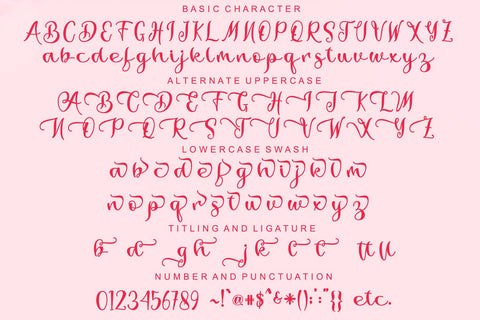 BASIC CHARACTER
ABCDEFGHIJKLMNOPQRSTUVWXYZ
abcdefghijklmnopqrstuvwxyz
ALTERNATE UPPERCASE
ABCDEFGHIJKLM
NOPQRSTUVWXYZ
LOWERCASE SWASH
abcdefghijklm
nopqrstuvwxyz
TITLING AND LIGATURE
NUMBER AND PUNCTUATION
0123456789 ~!`@#$^&*();:'"{} etc.